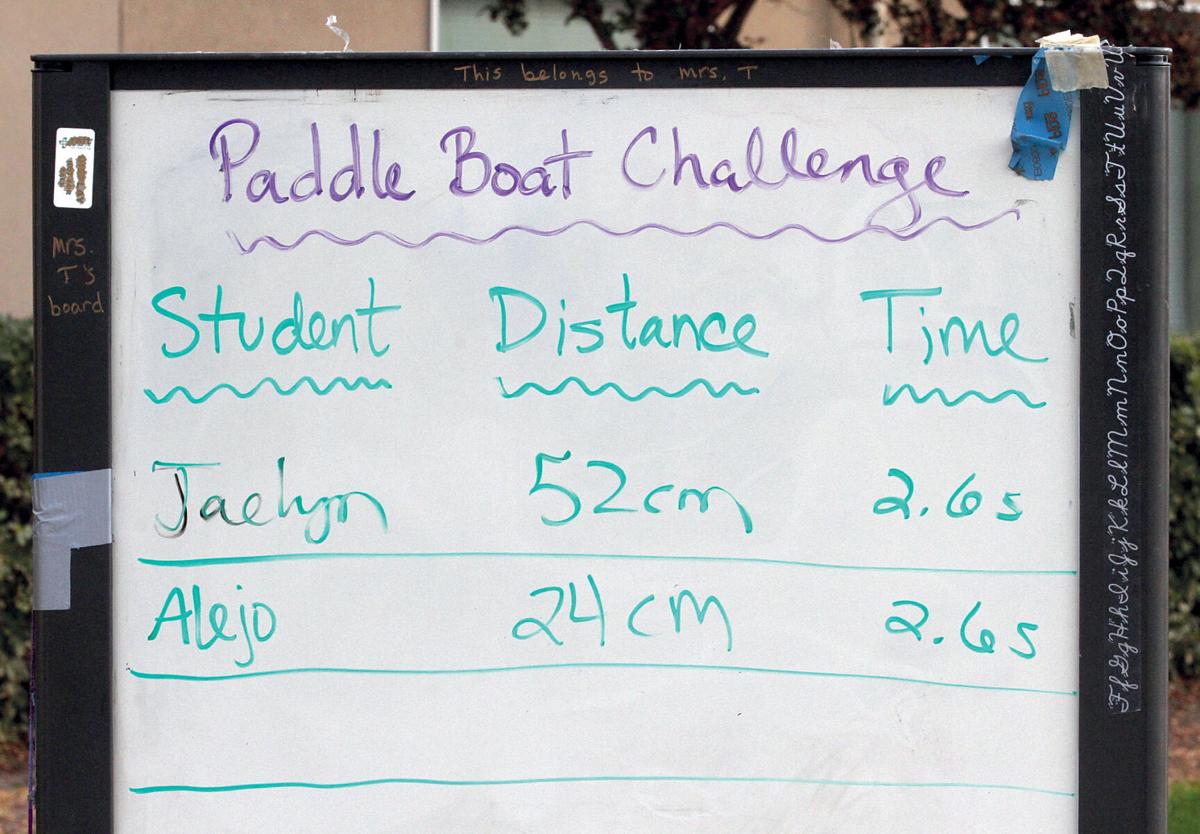 This belongs to mrs. T
Paddle Boat Challenge
Student Distance Time
Jaelyn 52cm 2.6s
Alejo 24cm 2.6s
mrs.
T's
board
FfGgHhIiJjKkLlMmNnOoPpQqRrSsTtUuVv